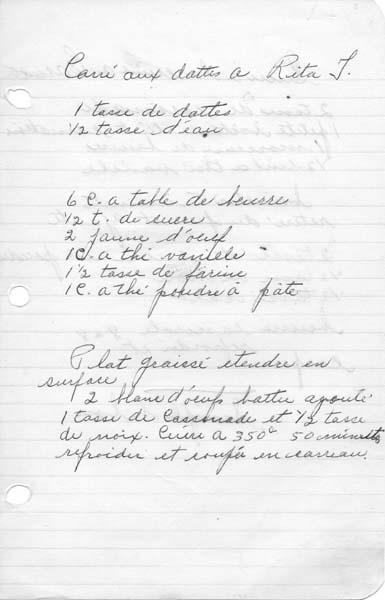 Carré aux dattes a Rita J.
1 tasse de dattes
1/2 tasse d'eau
6 C. a table de beurre
1/2 t. de sucre
2 jaune d'oeuf
1C. a thé vanille
1 1/2 tasse de farine
1C. a thé poudre à pâte
Plat graissé etendre en
surface
2 blanc d'oeufs battu ajouté
1 tasse de Cassonade et 1/2 tasse
de noix. Cuire a 350° 50 minutes
refroidir et coupé en carreau.